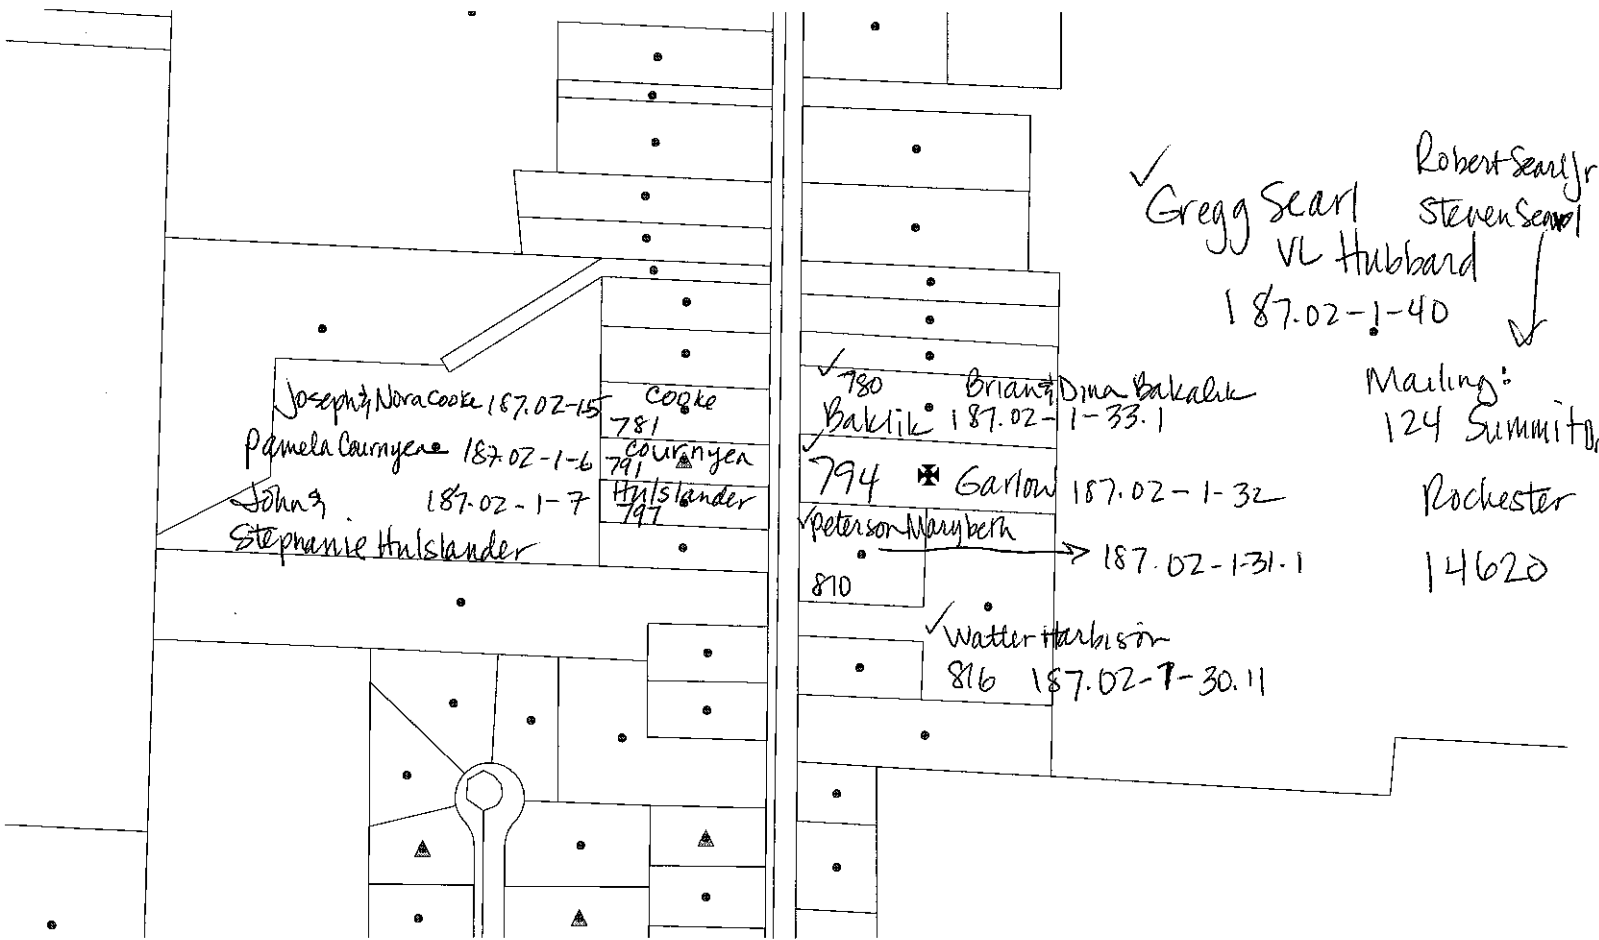 ✓
Gregg Searl
VL Hubbard
187.02-1-40
Robert Searl Jr
Steven Searl
Mailing:
124 Summit Dr
Rochester
14620
Joseph & Nora Cooke 187.02-1-5
Cooke
781
Pamela Cournyea 187.02-1-6
Cournyea
791
John &
Stephanie Hulslander
187.02-1-7
Hulslander
797
✓ 780
Baklik
Brian & Dina Bakalik
187.02-1-33.1
✓
794
Garlow 187.02-1-32
✓ Peterson Marybeth
187.02-1-31.1
810
✓ Walter Harbison
816 187.02-1-30.11